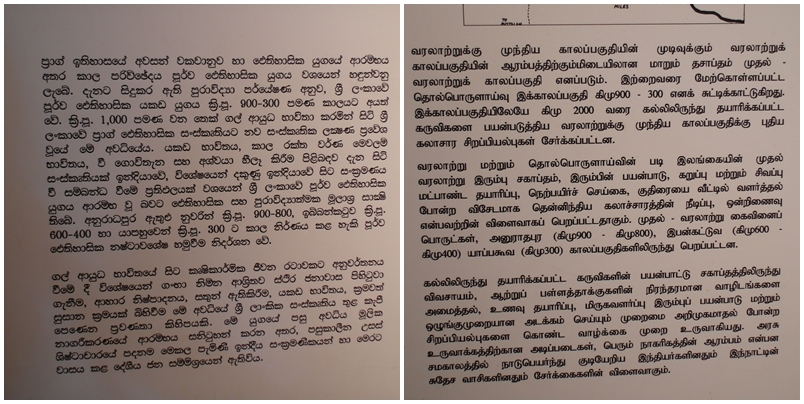 ප්‍රාග් ඉතිහාසයේ අවසන් වකවානුව හා ඓතිහාසික යුගයේ ආරම්භය
අතර කාල පරිච්ඡේදය පූර්ව ඓතිහාසික යුගය වශයෙන් හඳුන්වනු
ලැබේ. දැනට සිදුකර ඇති පුරාවිද්‍යා පර්යේෂණ අනුව, ශ්‍රී ලංකාවේ
පූර්ව ඓතිහාසික යකඩ යුගය ක්‍රි.පූ. 900-300 පමණ කාලයට අයත්
වේ. ක්‍රි.පූ. 1,000 පමණ වන තෙක් ගල් ආයුධ භාවිතා කරමින් සිටි ශ්‍රී
ලංකාවේ ප්‍රාග් ඓතිහාසික සංස්කෘතියට නව සංස්කෘතික ලක්ෂණ ප්‍රවේශ
වූයේ මේ අවධියේය. යකඩ භාවිතය, කාල රක්ත වර්ණ මෙවලම්
භාවිතය, වී ගොවිතැන සහ අශ්වයා හීලෑ කිරීම පිළිබඳව දැන සිටි
සංස්කෘතියක් ඉන්දියාවේ, විශේෂයෙන් දකුණු ඉන්දියාවේ සිට සංක්‍රමණය
වී සම්බන්ධ වීමේ ප්‍රතිඵලයක් වශයෙන් ශ්‍රී ලංකාවේ පූර්ව ඓතිහාසික
යුගය ආරම්භ වූ බවට ඓතිහාසික සහ පුරාවිද්‍යාත්මක මූලාශ්‍ර සාක්ෂි
තිබේ. අනුරාධපුර ඇතුළු නුවරින් ක්‍රි.පූ. 900-800, ඉබ්බන්කටුව ක්‍රි.පූ.
600-400 හා යාපහුවෙන් ක්‍රි.පූ. 300 ට කාල නිර්ණය කළ හැකි පූර්ව
ඓතිහාසික නෂ්ටාවශේෂ හමුවීම නිදර්ශන වේ.
ගල් ආයුධ භාවිතයේ සිට කෘෂිකාර්මික ජීවන රටාවකට අනුවර්තනය
වීමේ දී විශේෂයෙන් ගංගා නිම්න ආශ්‍රිතව ස්ථිර ජනාවාස පිහිටුවා
ගැනීම, ආහාර නිෂ්පාදනය, සතුන් ඇතිකිරීම, යකඩ භාවිතය, ක්‍රමවත්
සුසාන ක්‍රමයක් බිහිවීම මේ අවධියේ ශ්‍රී ලාංකික සංස්කෘතිය තුළ කැපී
පෙනෙන ප්‍රවණතා කිහිපයකි. මේ යුගයේ පසු අවධිය මූලික
නාගරීකරණයේ ආරම්භය සනිටුහන් කරන අතර, පසුකාලීන උසස්
ශිෂ්ටාචාරයේ පදනම මෙකල පැමිණි ඉන්දීය සංක්‍රමණිකයන් හා මෙරට
වාසය කළ දේශීය ජන සම්මිශ්‍රයෙන් ඇතිවිය.
MILES
வரலாற்றுக்கு முந்திய காலப்பகுதியின் முடிவுக்கும் வரலாற்றுக்
காலப்பகுதியின் ஆரம்பத்திற்குமிடையிலான மாறும் தசாப்தம் முதல் -
வரலாற்றுக் காலப்பகுதி எனப்படும். இற்றைவரை மேற்கொள்ளப்பட்ட
தொல்பொருளாய்வு இக்காலப்பகுதி கிமு900 - 300 எனக் சுட்டிக்காட்டுகிறது.
இக்காலப்பகுதியிலேயே கிமு 2000 வரை கல்லிலிருந்து தயாரிக்கப்பட்ட
கருவிகளை பயன்படுத்திய வரலாற்றுக்கு முந்திய காலப்பகுதிக்கு புதிய
கலாசார சிறப்பியல்புகள் சேர்க்கப்பட்டன.
வரலாற்று மற்றும் தொல்பொருளாய்வின் படி இலங்கையின் முதல்
வரலாற்று இரும்பு சகாப்தம், இரும்பின் பயன்பாடு, கறுப்பு மற்றும் சிவப்பு
மட்பாண்ட தயாரிப்பு, நெற்பயிர்ச் செய்கை, குதிரையை வீட்டில் வளர்த்தல்
போன்ற விசேடமாக தென்னிந்திய கலாச்சாரத்தின் நீடிப்பு, ஒன்றிணைவு
என்பவற்றின் விளைவாகப் பெறப்பட்டதாகும். முதல் - வரலாற்று கைவினைப்
பொருட்கள், அனுராதபுர (கிமு900 - கிமு800), இபன்கட்டுவ (கிமு600 -
கிமு400) யாப்பகூவ (கிமு300) காலப்பகுதிகளிலிருந்து பெறப்பட்டன.
கல்லிலிருந்து தயாரிக்கப்பட்ட கருவிகளின் பயன்பாட்டு சகாப்தத்திலிருந்து
விவசாயம், ஆற்றுப் பள்ளத்தாக்குகளின் நிரந்தரமான வாழிடங்களை
அமைத்தல், உணவு தயாரிப்பு, மிருகவளர்ப்பு இரும்புப் பயன்பாடு மற்றும்
ஒழுங்குமுறையான அடக்கம் செய்யும் முறைமை அறிமுகமாதல் போன்ற
சிறப்பியல்புகளை கொண்ட வாழ்க்கை முறை உருவாகியது. அரசு
உருவாக்கத்திற்கான அடிப்படைகள், பெரும் நாகரிகத்தின் ஆரம்பம் என்பன
சமகாலத்தில் நாடுபெயர்ந்து குடியேறிய இந்தியர்களினதும் இந்நாட்டின்
சுதேச வாசிகளினதும் சேர்க்கைகளின் விளைவாகும்.